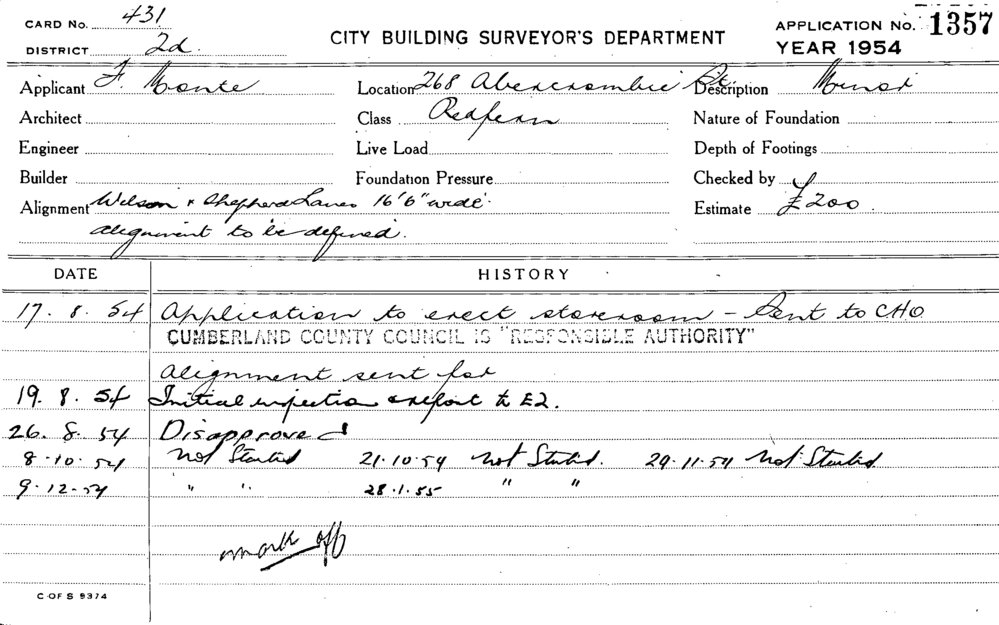 CARD No. 431
DISTRICT 2d.
CITY BUILDING SURVEYOR'S DEPARTMENT
APPLICATION No. 1357
YEAR 1954
Applicant F. Monte Location 268 Abercrombie St. Description Minor
Architect Class Redfern Nature of Foundation
Engineer Live Load Depth of Footings
Builder Foundation Pressure Checked by
Alignment Wilson & Shepherd Lanes 16'6" wide. Estimate £200.
alignment to be defined.
DATE HISTORY
17. 8. 54 Application to erect storeroom – Sent to CHO
CUMBERLAND COUNTY COUNCIL IS "RESPONSIBLE AUTHORITY"
Alignment sent for
19. 8. 54 Initial inspection & report to E2.
26. 8. 54 Disapproved
8.10.54 Not Started 21.10.54 Not Started. 29.11.54 Not Started.
9.12.54 " " 28.1.55 " "
mark off
C OF S 9374